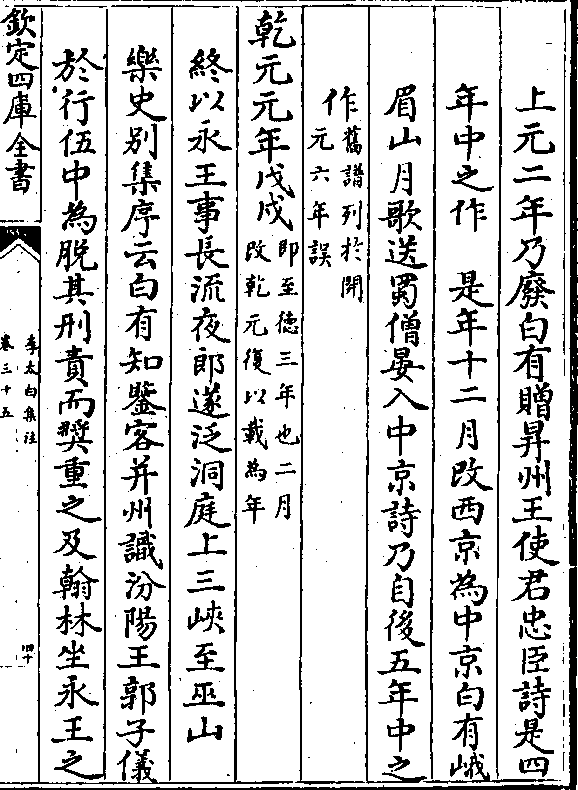 上元二年乃廢白有贈昇州王使君忠臣詩是四
年中之作　是年十二月改西京為中京白有峨
眉山月歌送蜀僧晏入中京詩乃自後五年中之
作舊譜列於開
元六年誤
乾元元年戊戌即至德三年也二月
改乾元復以載為年
終以永王事長流夜郎遂泛洞庭上三峽至巫山
樂史別集序云白有知鑒客并州識汾陽王郭子儀
於行伍中為脫其刑責而奬重之及翰林坐永王之
欽定四庫全書
李太白集注
卷三十五
四十